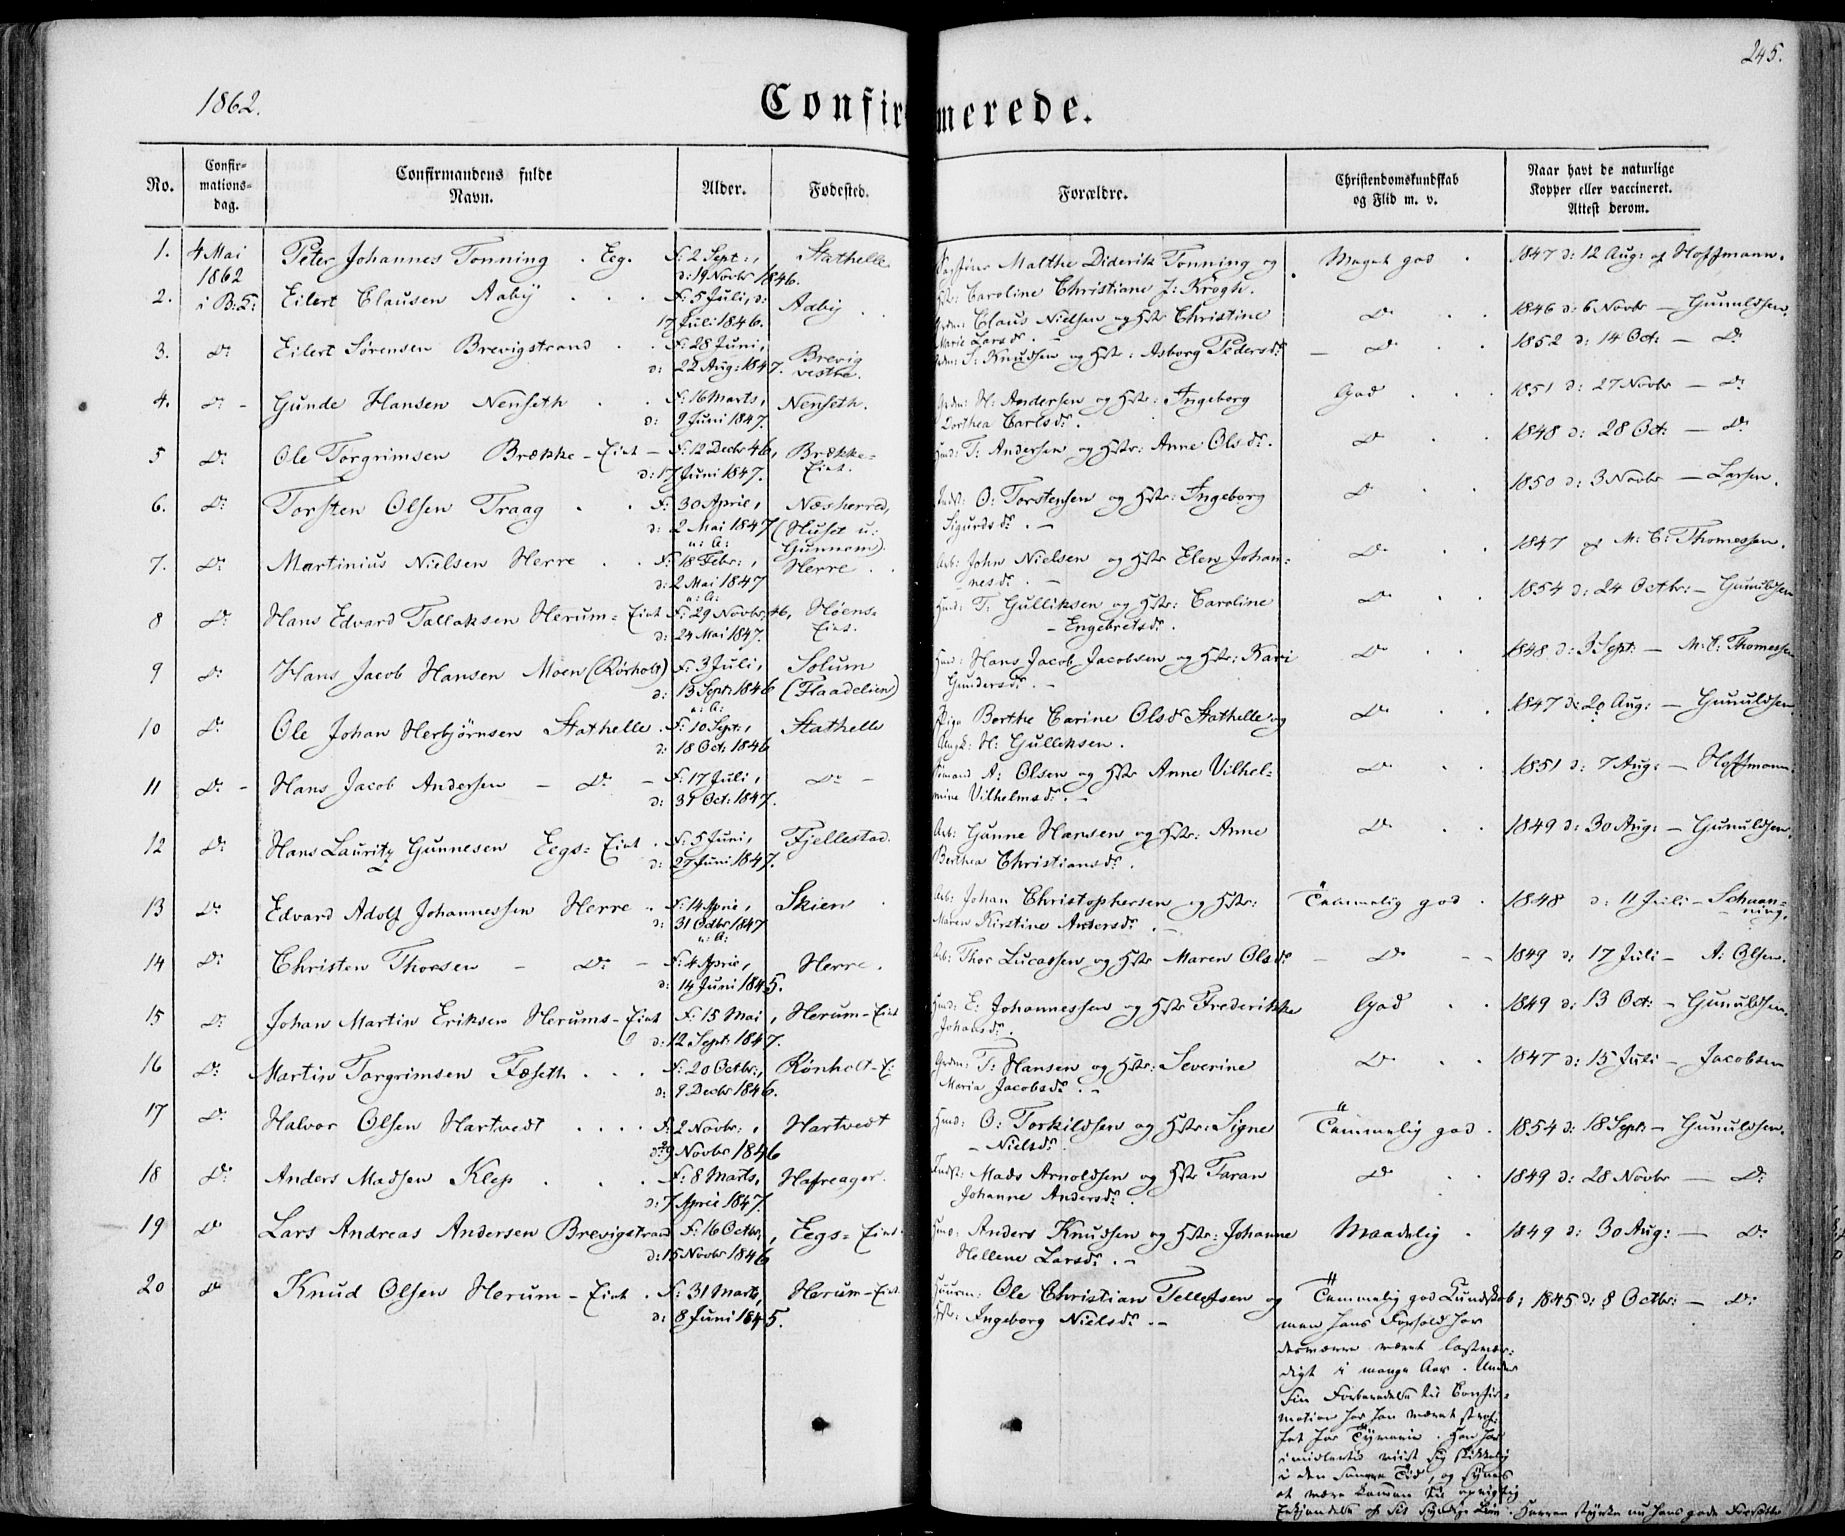 245.
1862.
Confirmerede.
No.
Confir-
mations-
dag.
Confirmandens fulde
Navn.
Alder.
Fødested.
Forældre.
Christendomskundskab
og Flid m. v.
Naar havt de naturlige
Kopper eller vaccineret.
Attest derom.
1. 4 Mai 1862 i B:S: Peter Johannes Tonning . Eeg. F: 2 Sept:, d: 19 Novbr 1846. Stathelle Malthe Diderik Tonning og Hstr: Caroline Christiane J: Krogh. Meget god 1847 d: 12 Aug: af Hoffmann.
2. Eilert Clausen Aaby F: 5 Juli, d: 17 Juli 1846. Aaby Grdm: Claus Nielsen og Hstr Christine Marie Larsdr. Do 1846 d: 6 Novbr — Gunuldsen.
3. Do Eilert Sørensen Brevigstrand F: 28 Juni, d: 22 Aug: 1847. Brevig vestre. Grdm: S: Knudsen og Hstr: Asborg Pedersdr — Do 1852 d: 14 Oct: — Do
4. Do - Gunde Hansen Nenseth F: 16 Marts, d: 9 Juni 1847. Nenseth. Grdm: H: Andersen og Hstr: Ingeborg Dorthea Carlsdr. God 1851 d: 27 Novbr — Do
5 Do Ole Torgrimsen Brække-Eiet — F: 12 Decbr 46, d: 17 Juni 1847. Brække-Eiet. Husm: T: Andersen og Hstr: Anne Olsdr. Do 1848 d: 28 Oct: — Do
6. Do Torsten Olsen Traag F: 30 April, d: 2 Mai 1847 Næsherred, (Huset u: Gunnem) Inds: O: Torstensen og Hstr: Ingeborg Sigurdsdr. — Do 1850 d: 3 Novbr — Larsen.
7. Do Martinius Nielsen Herre F: 18 Febr:, d: 2 Mai 1847 a: A: Herre Arb: John Nielsen og Hstr Elen Johannesdr. — Do 1847 af M: C: Thomessen.
8 Do Hans Edvard Tallaksen Herum=Eiet F: 29 Novbr 46, d: 24 Mai 1847. Høens=Eiet. Husm: T: Gulliksen og Hstr: Caroline — Engebretsdr. Do 1854 d: 24 Octbr: — Gunuldsen
9 Do Hans Jacob Hansen Moen (Rørholt) F: 3 Juli, d: 13 Sept: 1846 a: A: Solum (Flaadelien) Husm: Hans Jacob Jacobsen og Hstr: Kari Gundersdr. — Do 1848 d: 3 Sept: — M: C: Thomessen
10 Do Ole Johan Herbjørnsen Stathelle F: 10 Sept:, d: 18 Oct: 1846 Stathelle Pige Berthe Carine Olsdr Stathelle og Ungk: H: Gulliksen. Do 1847 d: 20 Aug: — Gunuldsen.
11 Do - Hans Jacob Andersen — Do — F: 17 Juli, d: 31 Oct: 1847. — Do — Sømand A: Olsen og Hstr Anne Vilhelmine Vilhelmsdr. — Do 1851 d: 7 Aug: — Hoffmann.
12 Do Hans Lauritz Gunnesen Eegs=Eiet F: 5 Juni, d: 27 Juni 1847. Fjellestad. Arb: Gunne Hansen og Hstr: Anne Berthea Christiansdr. Do 1849 d: 30 Aug: — Gunuldsen.
13 Do Edvard Adolf Johannessen Herre F: 14 April, d: 31 Octbr 1847 a: A: Skien Arb: Johan Christophersen og Hstr: Maren Kirstine Andersdr. — Temmelig god 1848 d: 11 Juli — Schaanning.
14 Do Christen Thorsen — Do — F: 4 April, d: 14 Juni 1845. Herre. Arb: Thor Lucassen og Hstr Maren Olsdr — Do 1849 d: 17 Juli — A: Olsen.
15 Do Johan Martin Eriksen Herums-Eiet F: 15 Mai, d: 12 Sept: 1847. Herum-Eiet Husm: E: Johannessen og Hstr Frederikke Johansdr. God 1849 d: 13 Oct: — Gunuldsen.
16 Do Martin Torgrimsen Fæseth F: 20 Octbr:, d: 9 Decbr 1846. Rønholt-E: Grdm: T: Hansen og Hstr: Severine Maria Jacobsdr. — Do 1847 d: 15 Juli — Jacobsen
17 Do Halvor Olsen Hartvedt F: 2 Novbr:, d: 29 Novbr 1846 Hartvedt Husm: O: Torkildsen og Hstr: Signe — Nielsdr. Temmelig god 1854 d: 18 Sept: — Gunuldsen.
18 Do Anders Madsen Klep F: 8 Marts, d: 7 April 1847. Hafreager. Inds: Mads Arnoldsen og Hstr Taran Johanne Andersdr. Do 1849 d: 28 Novbr — Do
19 Do Lars Andreas Andersen Brevigstrand F: 16 Octbr, d: 15 Novbr 1846 Eegs=Eiet Husm: Anders Knudsen og Hstr: Johanne Hellene Larsdr. — Maadelig 1849 d: 30 Aug: — Do
20 Do Knud Olsen Herum-Eiet F: 31 Marts, d: 8 Juni 1845. Herum-Eiet Ole Christian Tellefsen og Hstr: Ingeborg Nielsdr. — Temmelig god Kundskab; 1845 d: 8 Octbr: — Do
men hans Forhold har
desværre været lastvær-
digt i mange Aar. Under
sin Forberedelse til Confir-
mation har han været straf-
fet for Tyverie. Han har
imidlertid viist sig skikkelig
i den senere Tid, og synes
at være kommen til oprigtig
Erkjendelse af sit syndige Liv. Herren styrke nu hans gode Forsæt